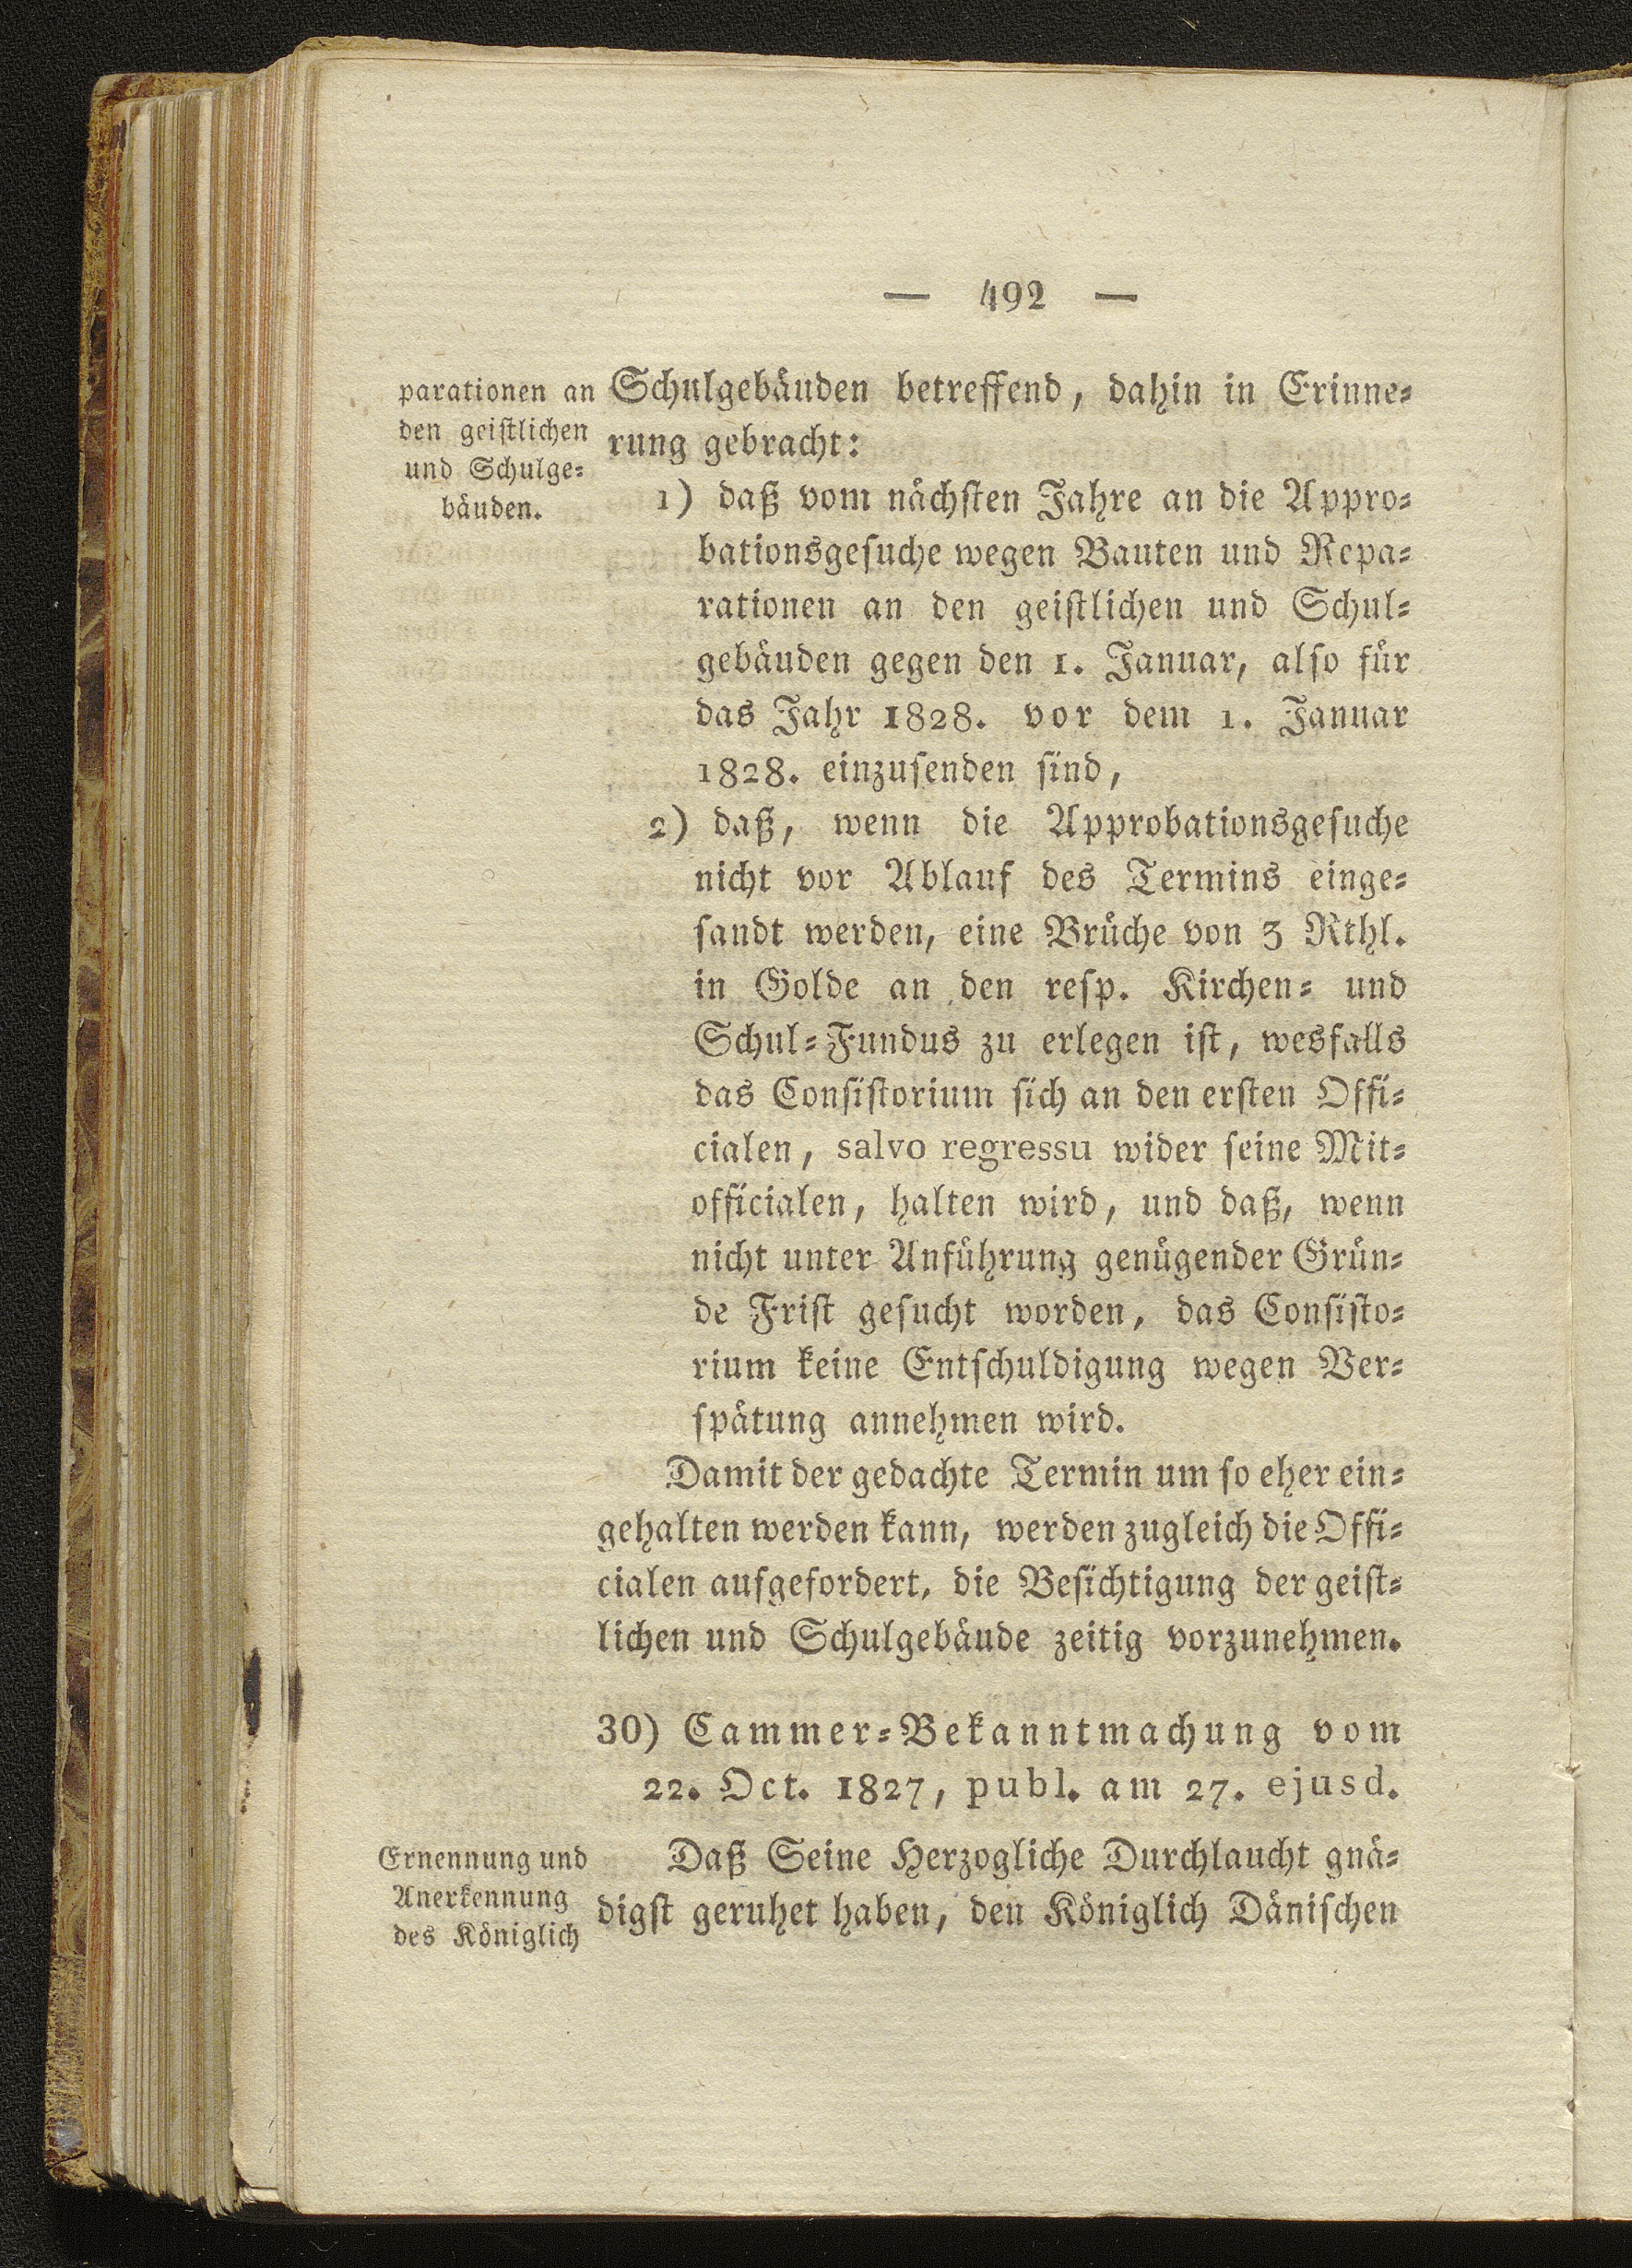 — 492 —
parationen an
den geistlichen
und Schulge-
bäuden.
Schulgebäuden betreffend, dahin in Erinne-
rung gebracht:
1) daß vom nächsten Jahre an die Appro-
bationsgesuche wegen Bauten und Repa-
rationen an den geistlichen und Schul-
gebäuden gegen den 1. Januar, also für
das Jahr 1828. vor dem 1. Januar
1828. einzusenden sind,
2) daß, wenn die Approbationsgesuche
nicht vor Ablauf des Termins einge-
sandt werden, eine Brüche von 3 Rthl.
in Golde an den resp. Kirchen- und
Schul-Fundus zu erlegen ist, wesfalls
das Consistorium sich an den ersten Offi-
cialen, salvo regressu wider seine Mit-
officialen, halten wird, und daß, wenn
nicht unter Anführung genügender Grün-
de Frist gesucht worden, das Consisto-
rium keine Entschuldigung wegen Ver-
spätung annehmen wird.
Damit der gedachte Termin um so eher ein-
gehalten werden kann, werden zugleich die Offi-
cialen aufgefordert, die Besichtigung der geist-
lichen und Schulgebäude zeitig vorzunehmen.
30) Cammer-Bekanntmachung vom
22. Oct. 1827, publ. am 27. ejusd.
Ernennung und
Anerkennung
des Königlich
Daß Seine Herzogliche Durchlaucht gnä-
digst geruhet haben, den Königlich Dänischen